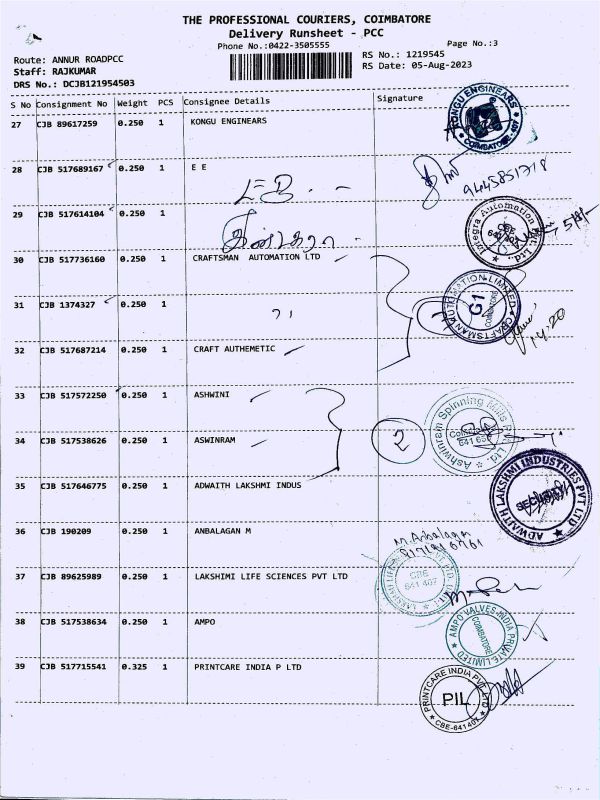 THE PROFESSIONAL COURIERS, COIMBATORE
Delivery Runsheet - PCC
Phone No.:0422-3505555
Page No.:3
Route: ANNUR ROADPCC
RS No.: 1219545
Staff: RAJKUMAR
RS Date: 05-Aug-2023
DRS No.: DCJB121954503
S No Consignment No Weight PCS Consignee Details Signature
27 CJB 89617259 0.250 1 KONGU ENGINEARS
KONGU ENGINEARS
COIMBATORE-407
28 CJB 517689167 0.250 1 E E
9445851718
29 CJB 517614104 0.250 1
Integra Automation Pvt. Ltd.
CBE
641 407
30 CJB 517736160 0.250 1 CRAFTSMAN AUTOMATION LTD
31 CJB 1374327 0.250 1
CRAFTSMAN AUTOMATION LIMITED
G1
COIMBATORE
32 CJB 517687214 0.250 1 CRAFT AUTHEMETIC
33 CJB 517572250 0.250 1 ASHWINI
34 CJB 517538626 0.250 1 ASWINRAM
2
Ashwinram Spinning Mills Pvt. Ltd.
35 CJB 517646775 0.250 1 ADWAITH LAKSHMI INDUS
ADWAITH LAKSHMI INDUSTRIES PVT LTD
SECURITY
36 CJB 190209 0.250 1 ANBALAGAN M
M. Anbalagan
37 CJB 89625989 0.250 1 LAKSHIMI LIFE SCIENCES PVT LTD
CBE
641 407
38 CJB 517538634 0.250 1 AMPO
AMPO VALVES INDIA PRIVATE LIMITED
COIMBATORE
39 CJB 517715541 0.325 1 PRINTCARE INDIA P LTD
PRINTCARE INDIA PVT LTD
PIL
CBE-641 407